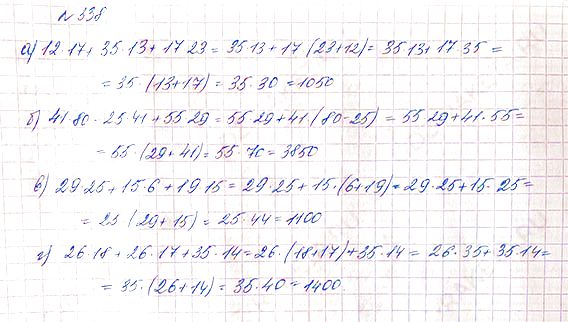 № 338
а) 12·17+35·13+17 23 = 35·13+17 (23+12) = 35 13+17 35 =
= 35 (13+17) = 35·30 = 1050
б) 41 80 - 25 41+55 29 = 55 29+41 (80-25) = 55 29+41·55 =
= 55·(29+41) = 55·70 = 3850
в) 29·25+15·6+19 15 = 29·25+15·(6+19) = 29·25+15·25 =
= 25 (29+15) = 25·44 = 1100
г) 26·18+26·17+35·14 = 26·(18+17)+35·14 = 26·35+35·14 =
= 35·(26+14) = 35·40 = 1400